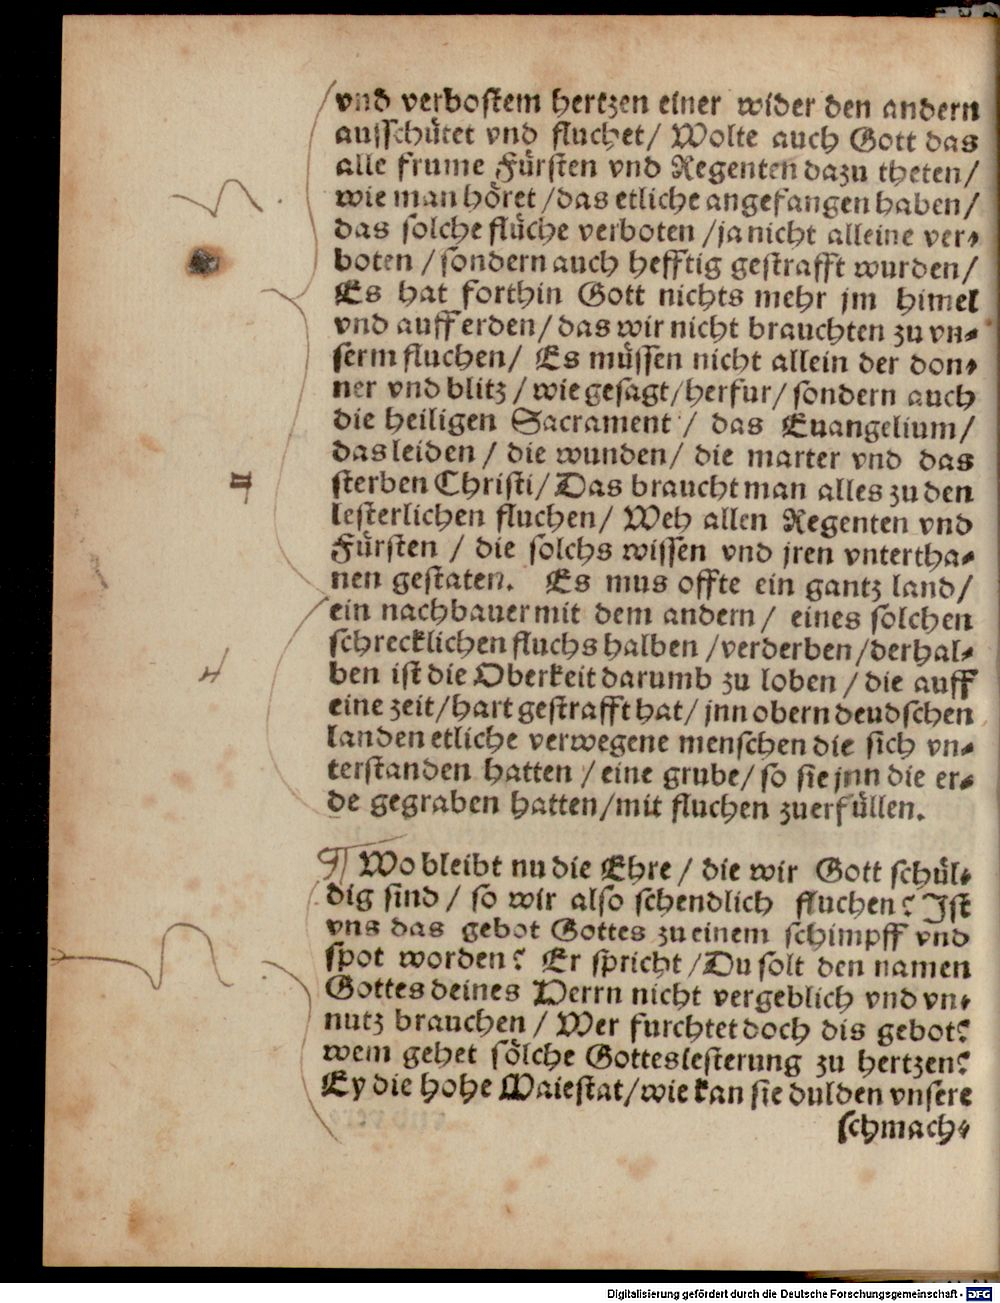 vnd verbostem hertzen einer wider den andern
ausschütet vnd fluchet/ Wolte auch Gott das
alle frume Fürsten vnd Regenten dazu theten/
wie man höret /das etliche angefangen haben/
das solche flüche verboten /ja nicht alleine ver⸗
boten /sondern auch hefftig gestrafft wurden/
Es hat forthin Gott nichts mehr jm himel
vnd auff erden/das wir nicht brauchten zu vn⸗
serm fluchen/ Es müssen nicht allein der don⸗
ner vnd blitz /wie gesagt/herfur/sondern auch
die heiligen Sacrament / das Euangelium/
das leiden / die wunden/ die marter vnd das
sterben Christi/Das braucht man alles zu den
lesterlichen fluchen/ Weh allen Regenten vnd
Fürsten / die solchs wissen vnd jren vntertha⸗
nen gestaten. Es mus offte ein gantz land/
ein nachbauer mit dem andern/ eines solchen
schrecklichen fluchs halben /verderben/derhal⸗
ben ist die Oberkeit darumb zu loben /die auff
eine zeit/hart gestrafft hat/jnn obern deudschen
landen etliche verwegene menschen die sich vn⸗
terstanden hatten /eine grube/so sie jnn die er⸗
de gegraben hatten/mit fluchen zuerfüllen.
¶ Wo bleibt nu die Ehre / die wir Gott schül⸗
dig sind / so wir also schendlich fluchen? Ist
vns das gebot Gottes zu einem schimpff vnd
spot worden? Er spricht /Du solt den namen
Gottes deines Herrn nicht vergeblich vnd vn⸗
nutz brauchen / Wer furchtet doch dis gebot?
wem gehet sölche Gotteslesterung zu hertzen?
Ey die hohe Maiestat/wie kan sie dulden vnsere
schmach⸗
Digitalisierung gefördert durch die Deutsche Forschungsgemeinschaft - DFG